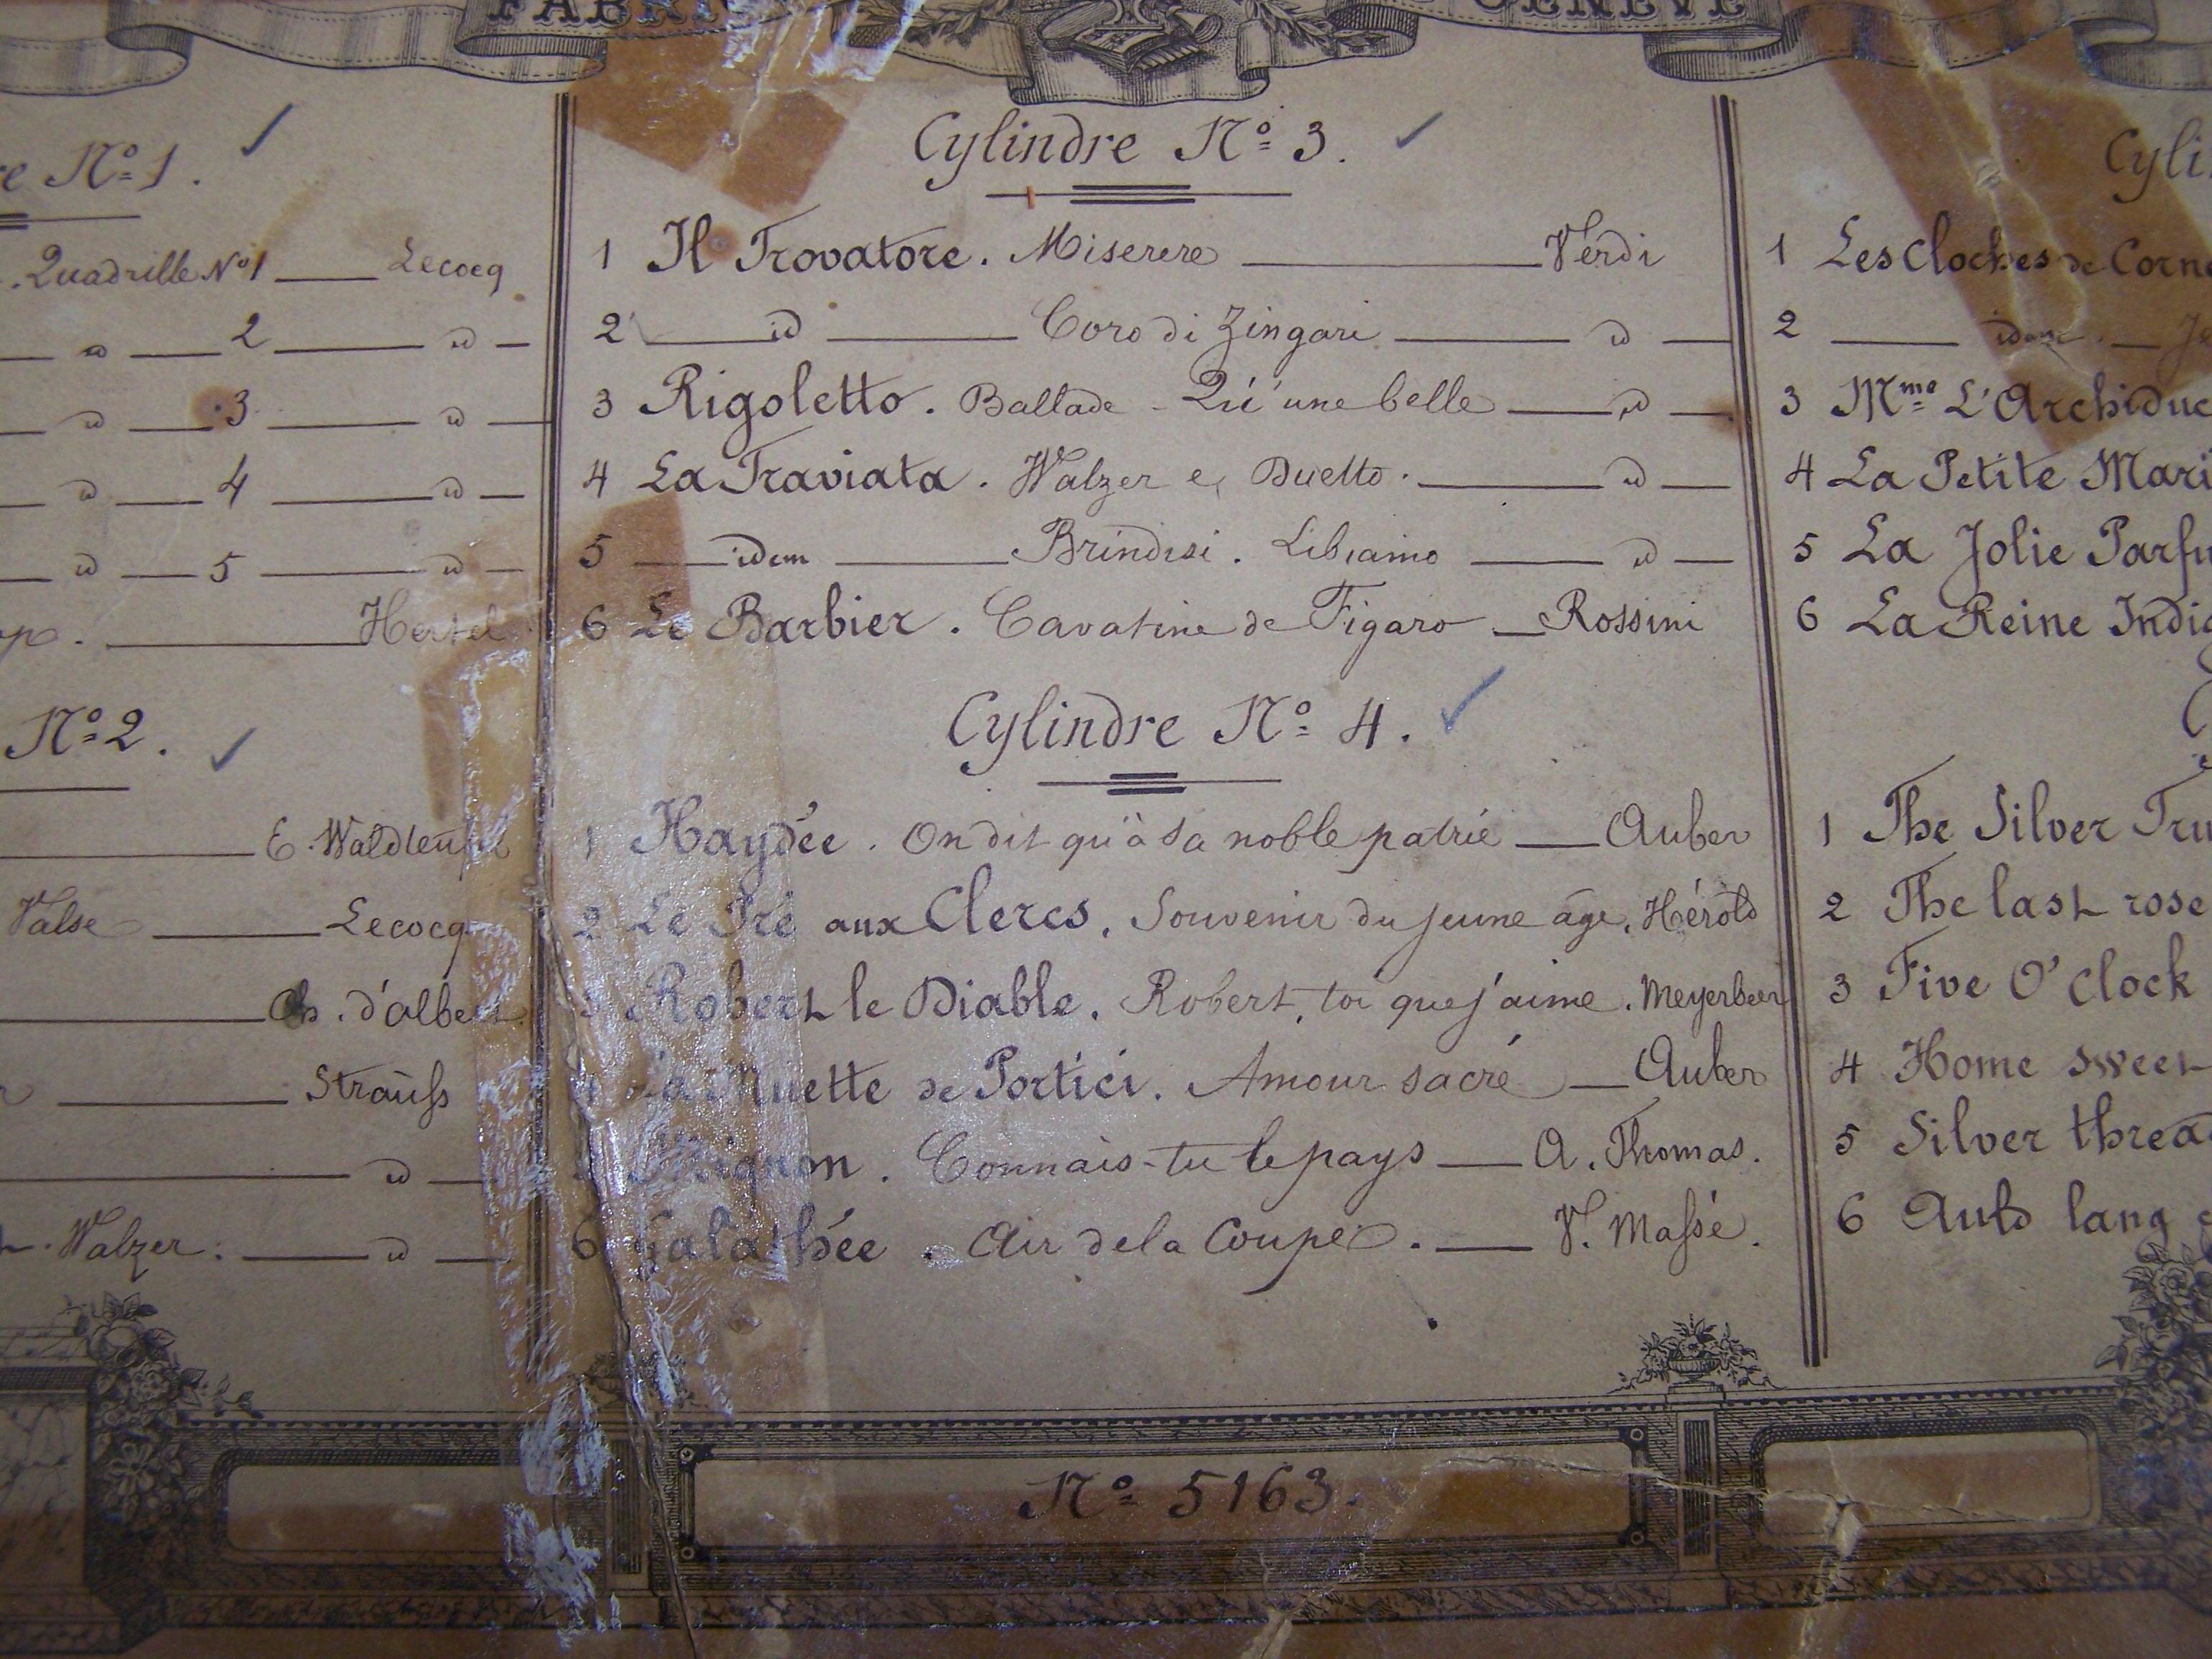 GENÈVE
re Nº 1.
. Quadrille Nº 1 Lecocq
id 2 id
id 3 id
id 4 id
id 5 id
Hertel
Nº 2.
E. Waldteufel
Valse Lecocq
Ch. d'Albert
Strauſs
id
Walzer. id
Cylindre Nº 3.
1 Il Trovatore. Miserere Verdi
2 id Coro di Zingari id
3 Rigoletto. Ballade - Qu'une belle id
4 La Traviata. Walzer e Duetto. id
5 idem Brindisi. Libiamo id
6 Le Barbier. Cavatine de Figaro Rossini
Cylindre Nº 4.
1 Haydée. On dit qu'à sa noble patrie Auber
2 Le Pré aux Clercs. Souvenir du jeune âge. Hérold
3 Robert le Diable. Robert, toi que j'aime. Meyerbeer
4 La Muette de Portici. Amour sacré Auber
Mignon. Connais-tu le pays A. Thomas.
6 Galathée. Air de la Coupe. V. Maſsé.
Cyli
1 Les Cloches de Corne
2 idem
3 Mme L'Archiduc
4 La Petite Mari
5 La Jolie Parfu
6 La Reine Indig
1 The Silver Tru
2 The last rose
3 Five O'Clock
4 Home sweet
5 Silver threa
6 Auld lang
Nº 5163.